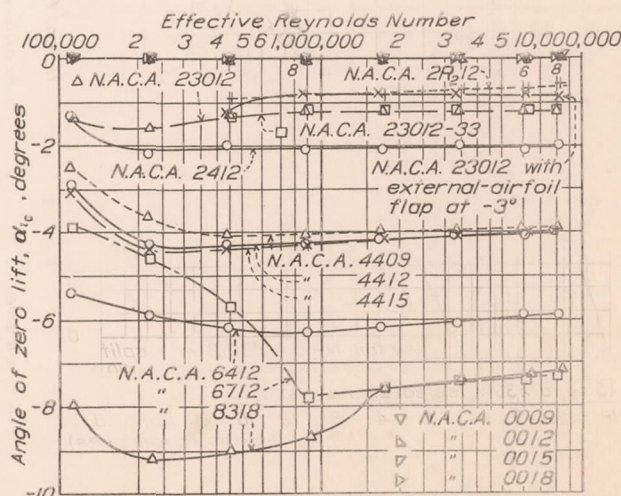 Effective Reynolds Number
100,000 2 3 4 5 6 8 1,000,000 2 3 4 6 8 10,000,000
Angle of zero lift, αi₀, degrees
0
-2
-4
-6
-8
-10
N.A.C.A. 23012
N.A.C.A. 2R₂12
N.A.C.A. 23012-33
N.A.C.A. 2412
N.A.C.A. 23012 with
external-airfoil
flap at -3°
N.A.C.A. 4409
" 4412
" 4415
N.A.C.A. 6412
" 6712
" 8318
N.A.C.A. 0009
" 0012
" 0015
" 0018